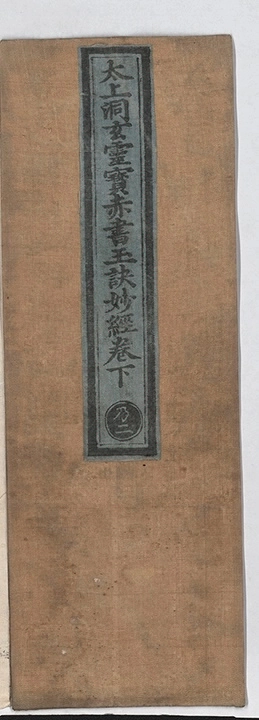 太上洞玄靈寶赤書玉訣妙經卷下
乃二